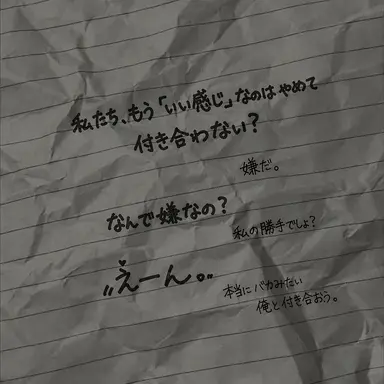 私たち、もう「いい感じ」なのはやめて
付き合わない？
嫌だ。
なんで嫌なの？
私の勝手でしょ？
えーん。
本当にバカみたい
俺と付き合おう。